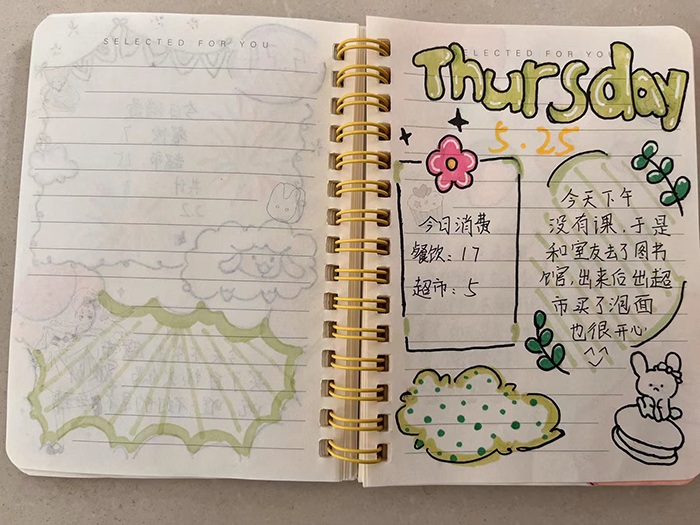 SELECTED FOR YOU
SELECTED FOR YOU
Thursday
5.25
今日消费
餐饮：17
超市：5
今天下午
没有课，于是
和室友去了图书
馆，出来后出超
市买了泡面
也很开心
^^